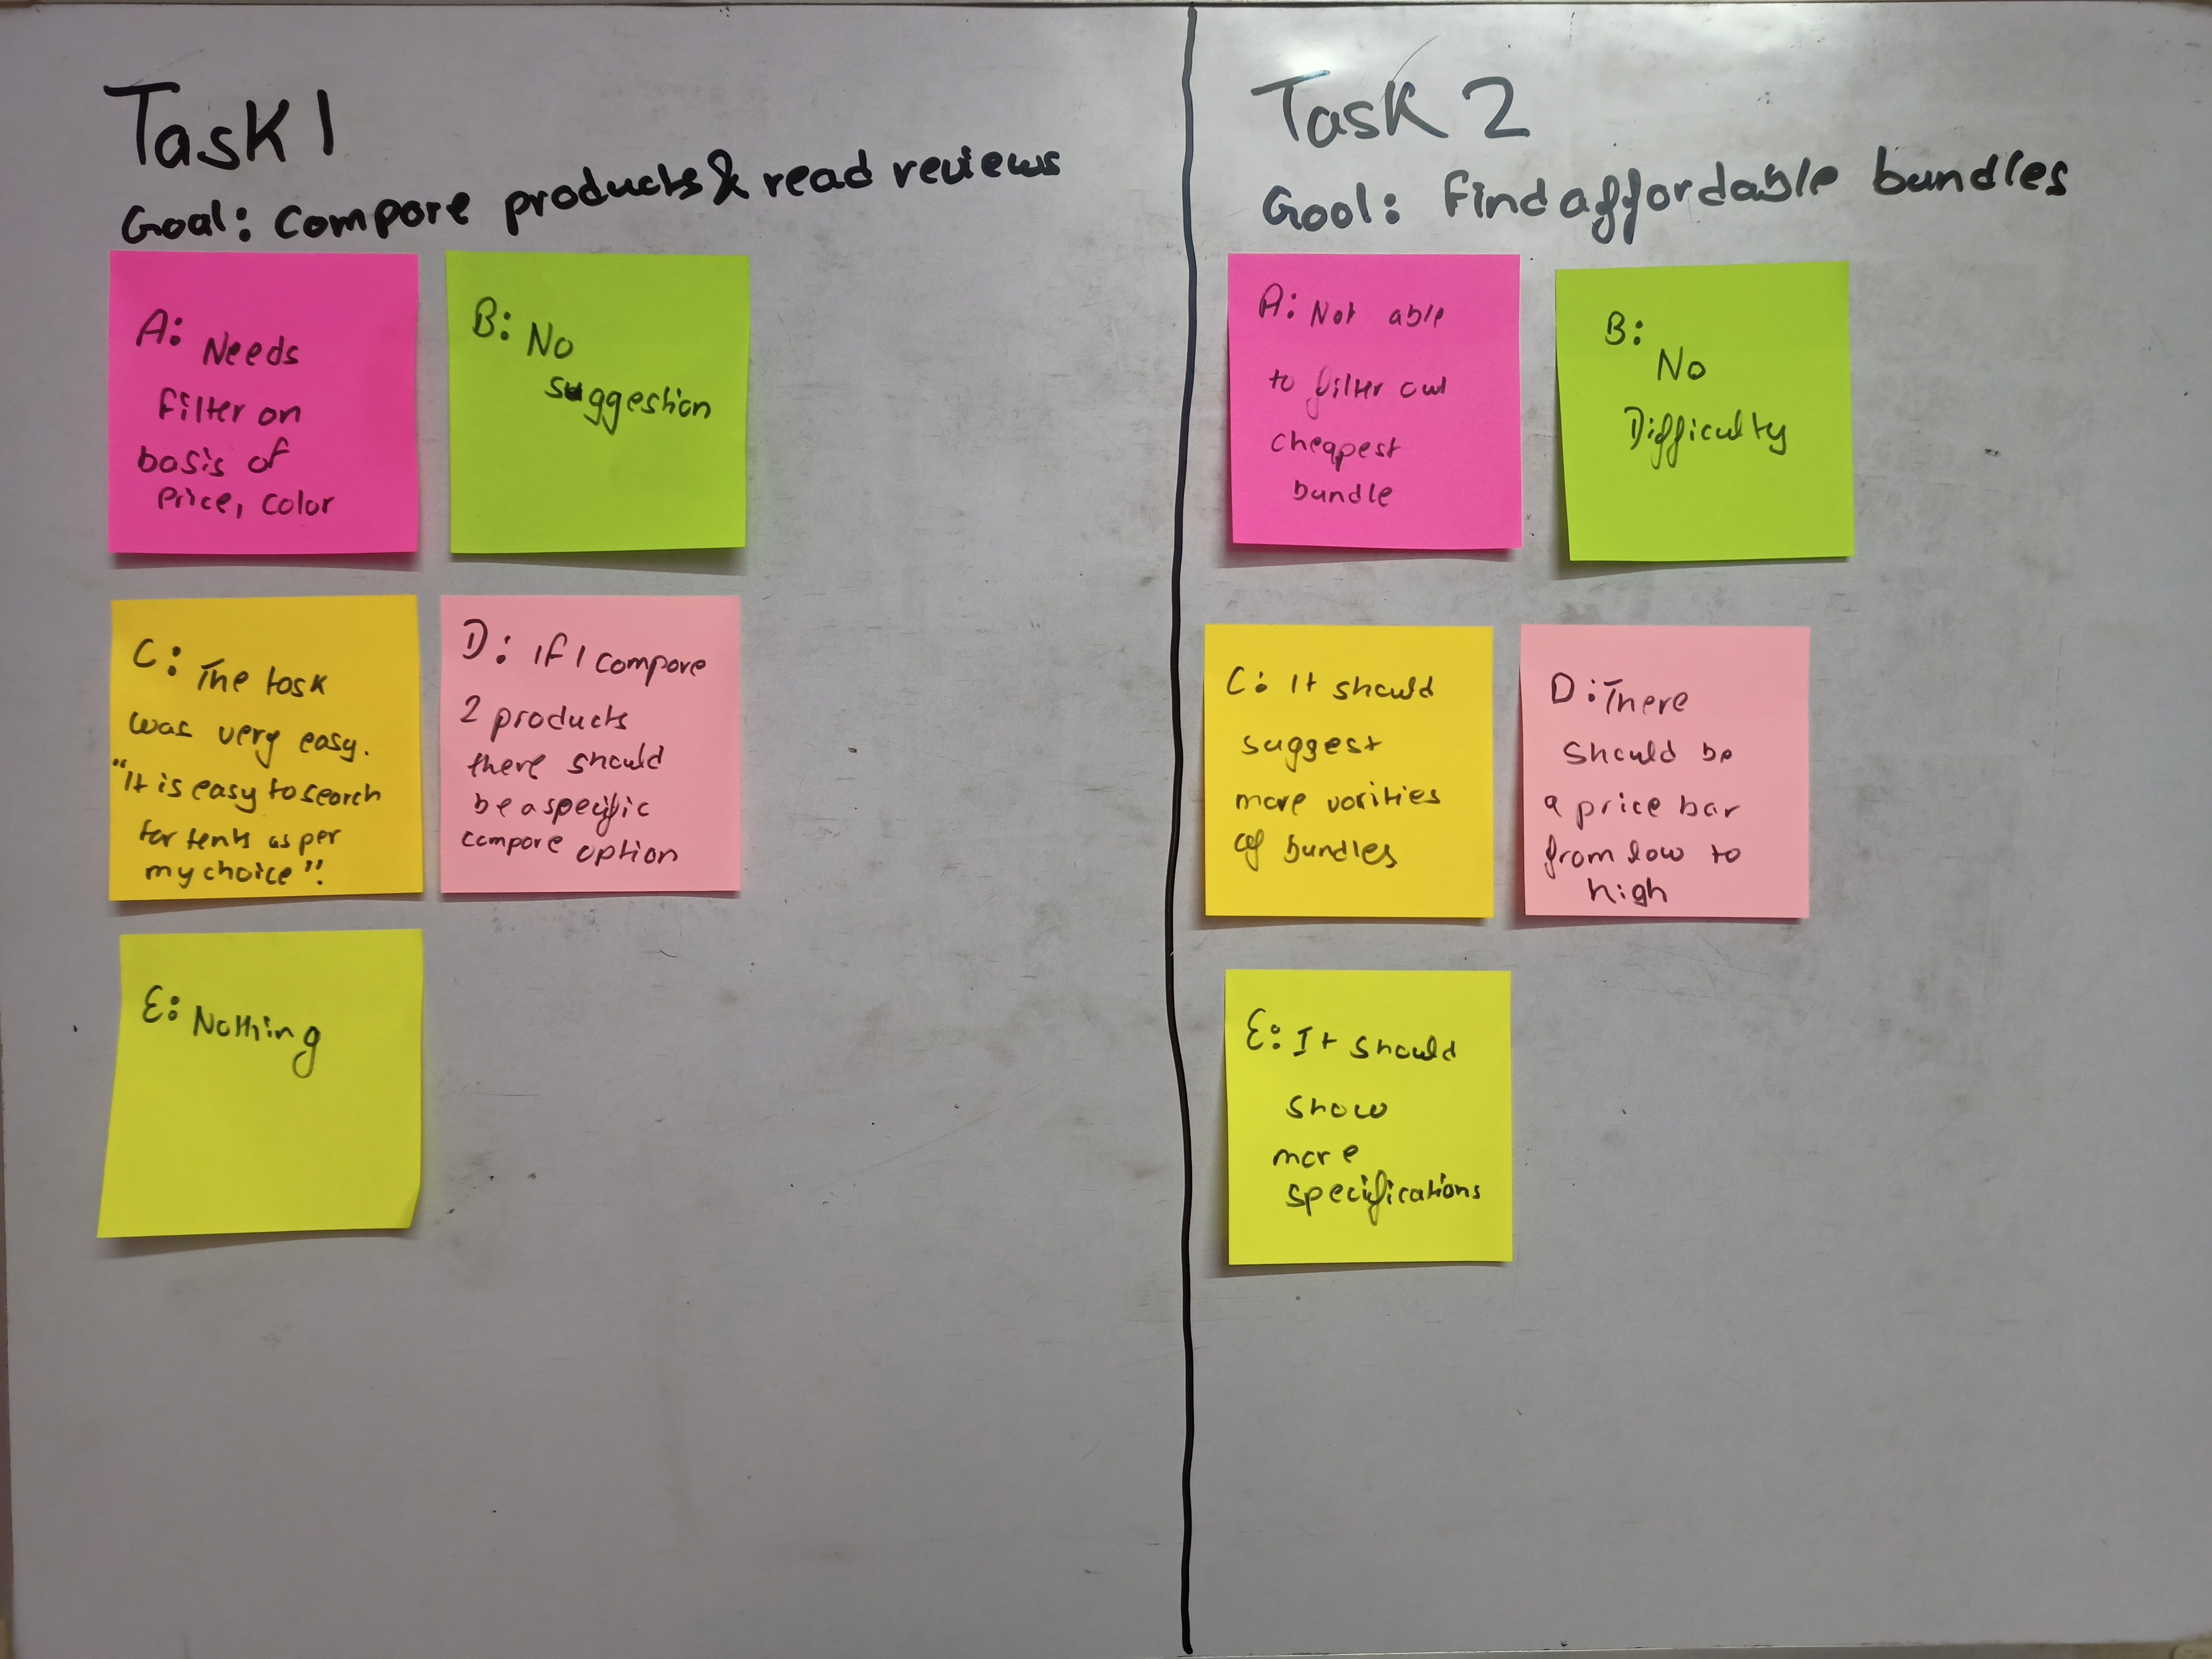 Task 1
Goal: Compare products & read reviews
A: Needs
Filter on
basis of
Price, Color
B: No
suggestion
C: The task
was very easy.
"It is easy to search
for tents as per
my choice".
D: If I compare
2 products
there should
be a specific
compare option
E: Nothing
Task 2
Goal: Find affordable bundles
A: Not able
to filter out
cheapest
bundle
B:
No
Difficulty
C: It should
suggest
more varities
of bundles
D: There
should be
a price bar
from low to
high
E: It should
show
more
specifications